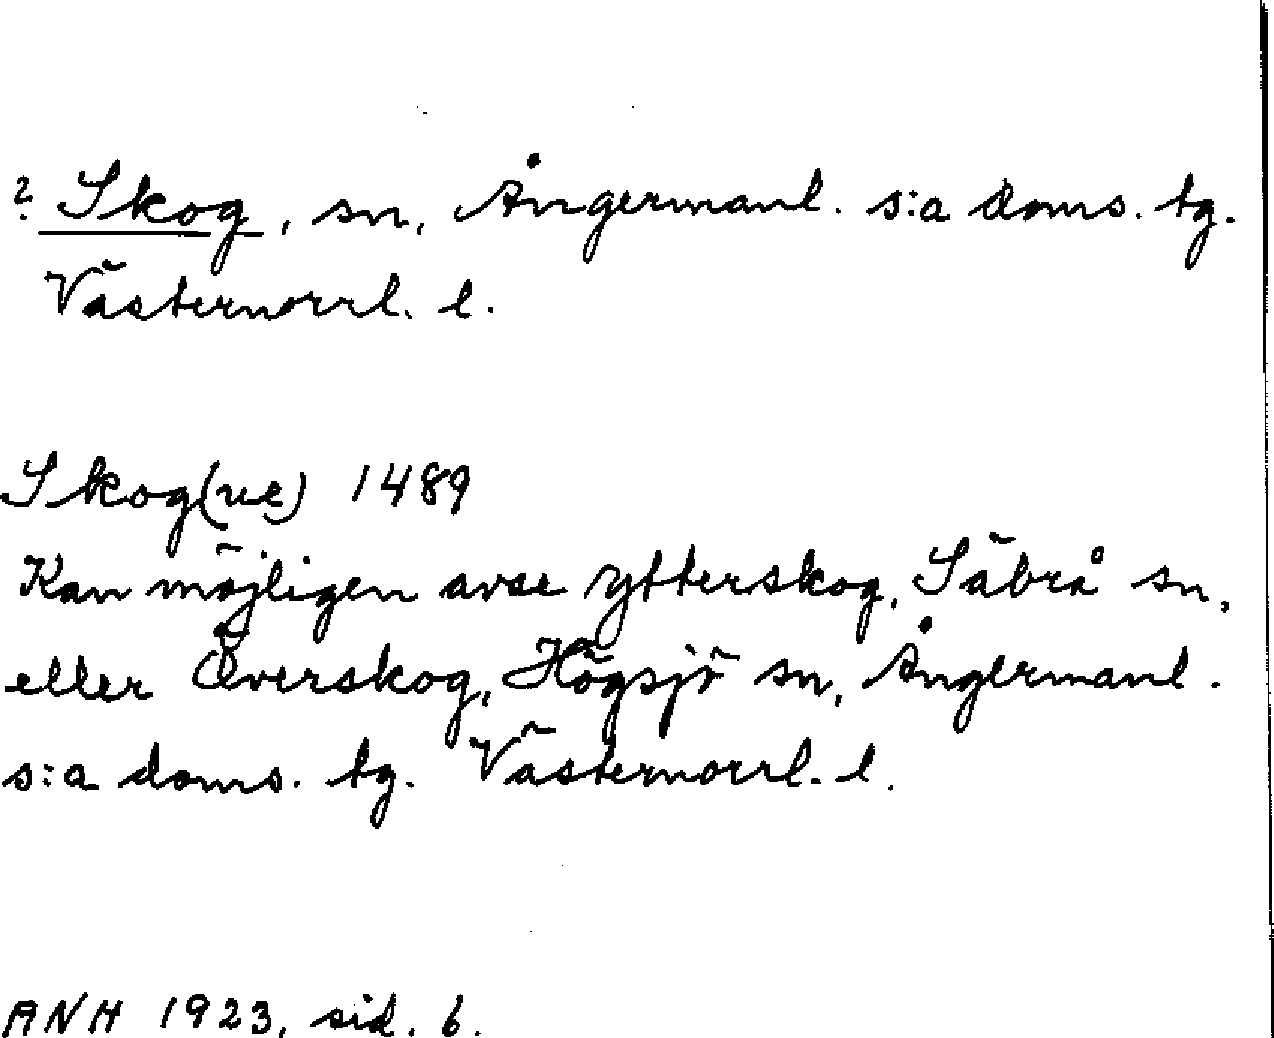 ? Skog, sn, Ångermanl. s:a doms. tg.
Västernorrl. l.
Skog(ue) 1489
Kan möjligen avse Ytterskog, Säbrå sn,
eller Överskog, Högsjö sn, Ångermanl.
s:a doms. tg. Västernorrl. l.
ANH 1923, sid. 6.